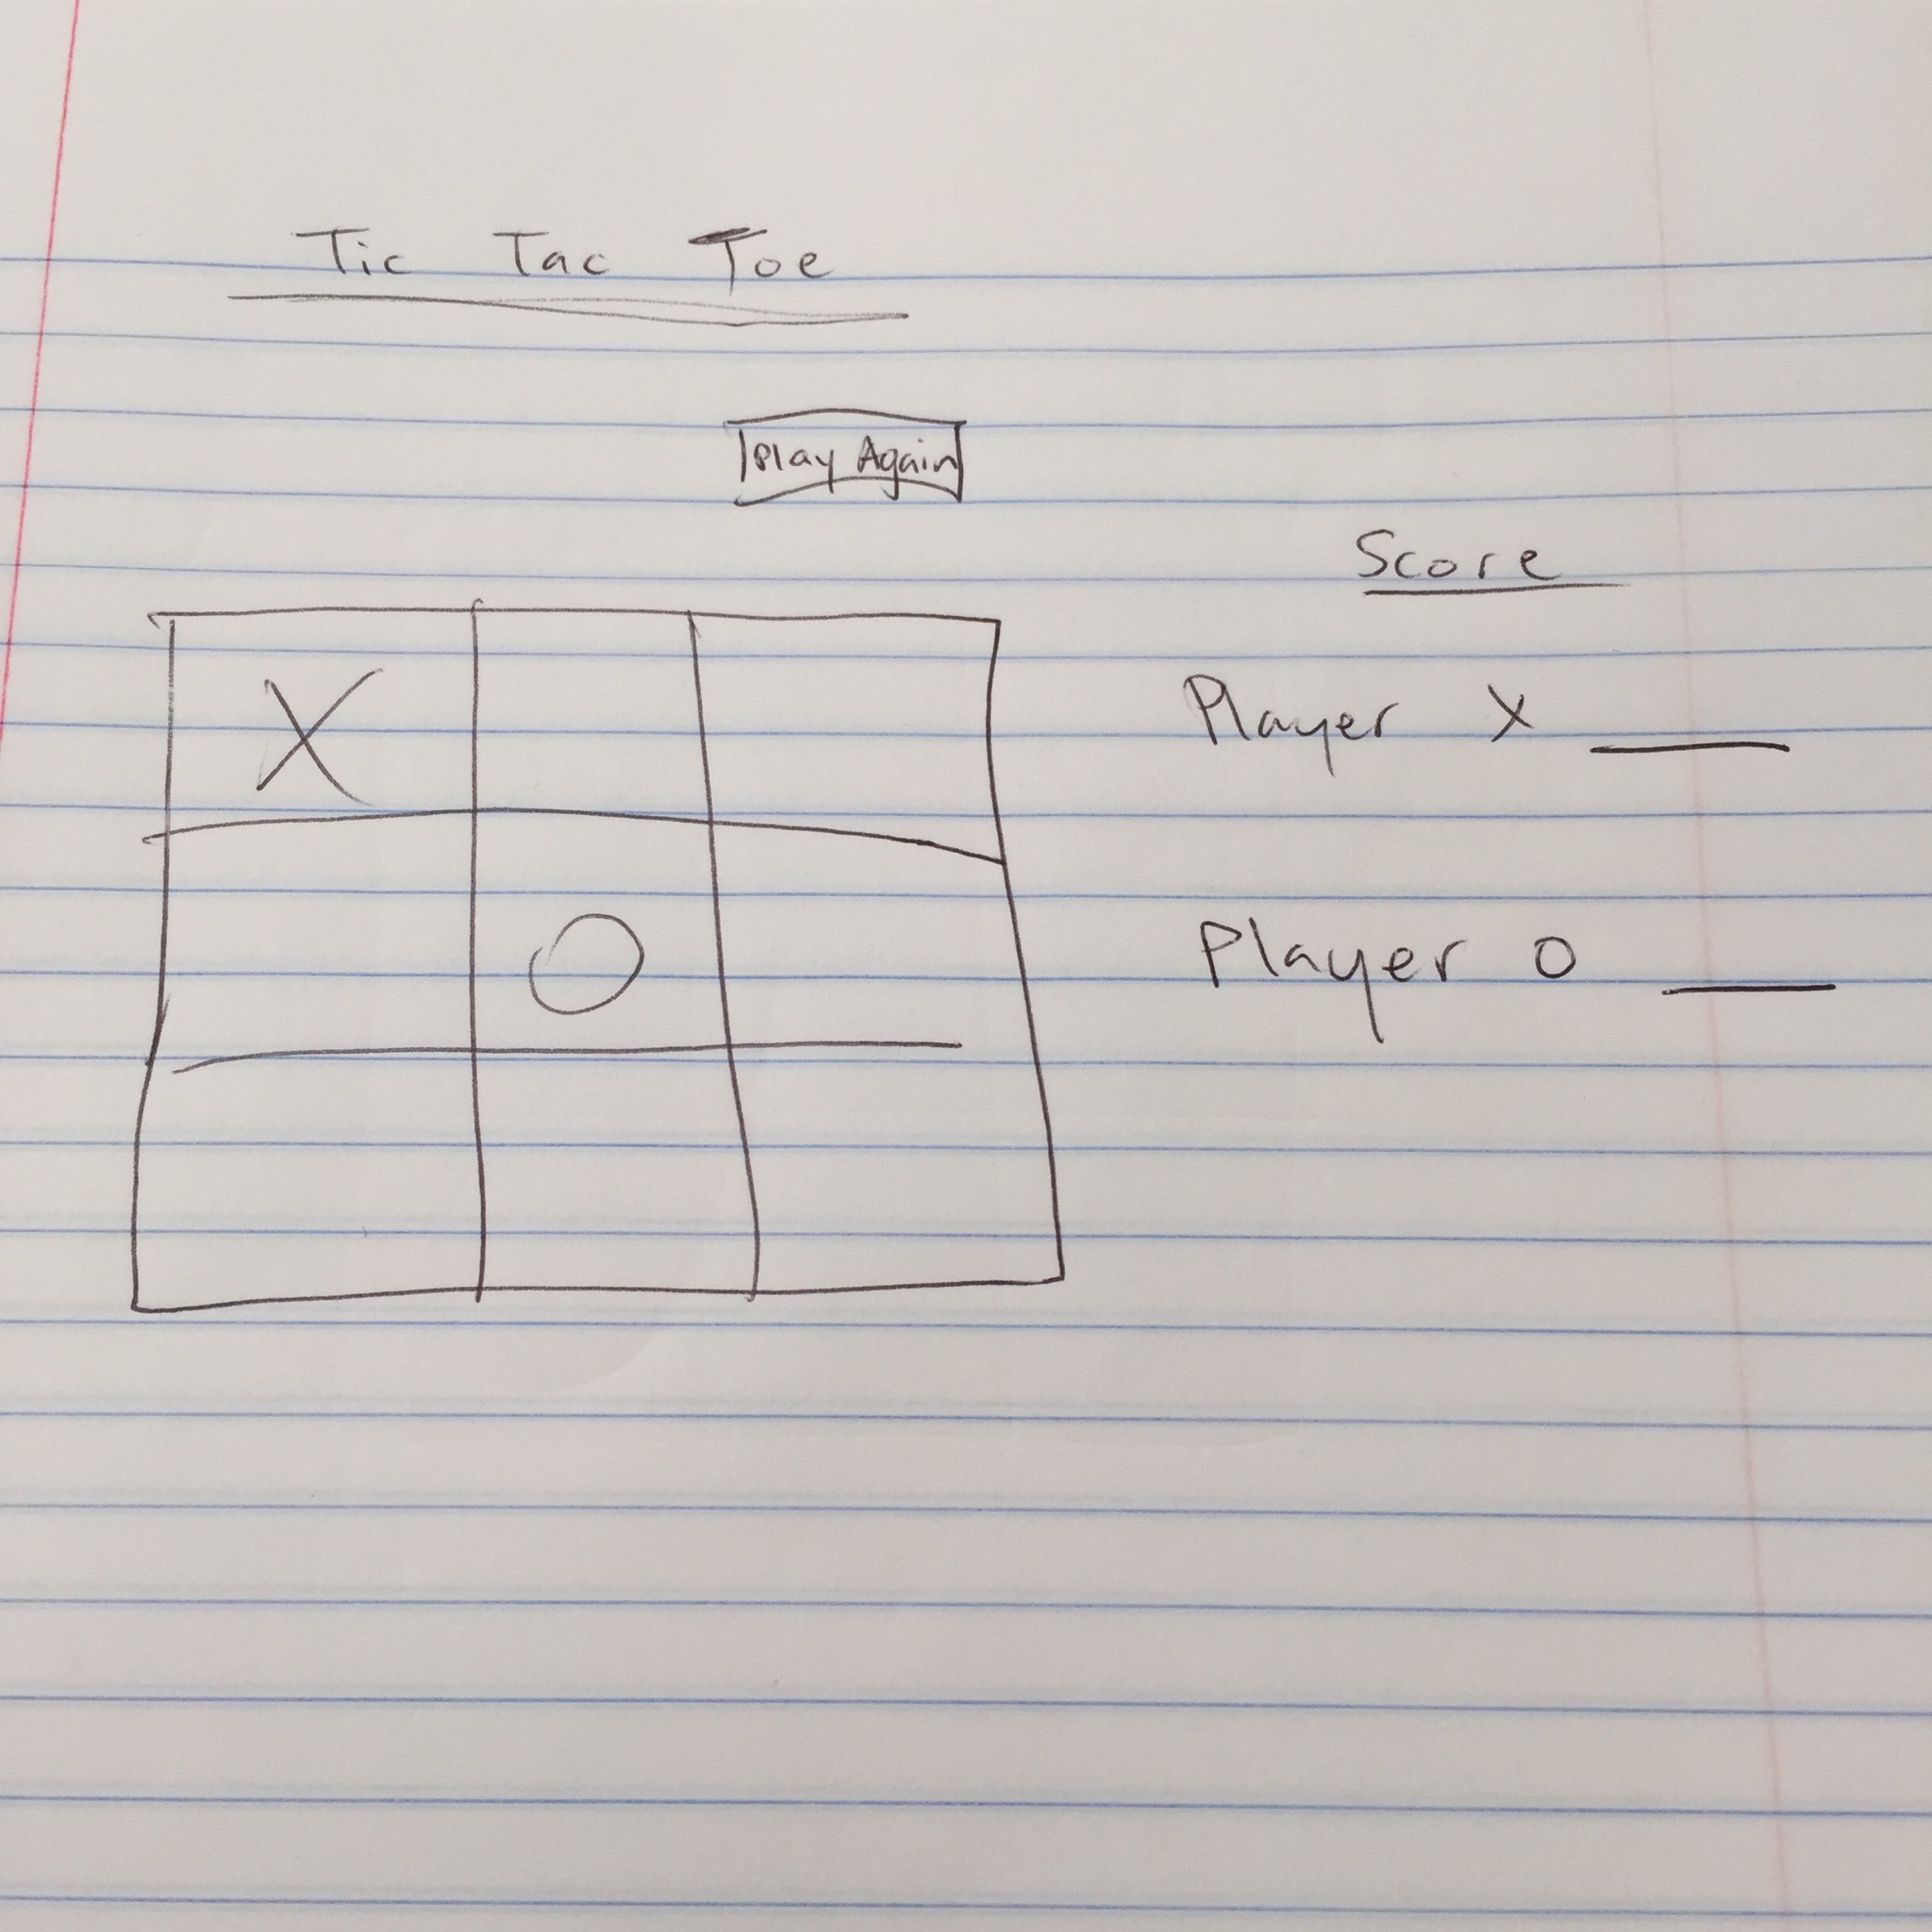 Tic Tac Toe
Play Again
Score
X
Player X
O
Player O